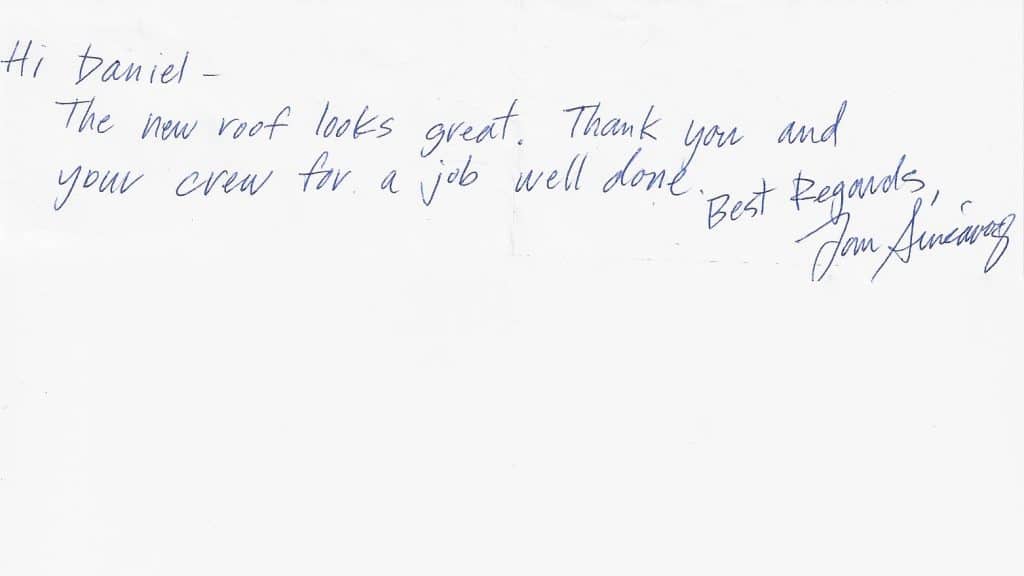 Hi Daniel -
The new roof looks great. Thank you and
your crew for a job well done.
Best Regards,
Tom